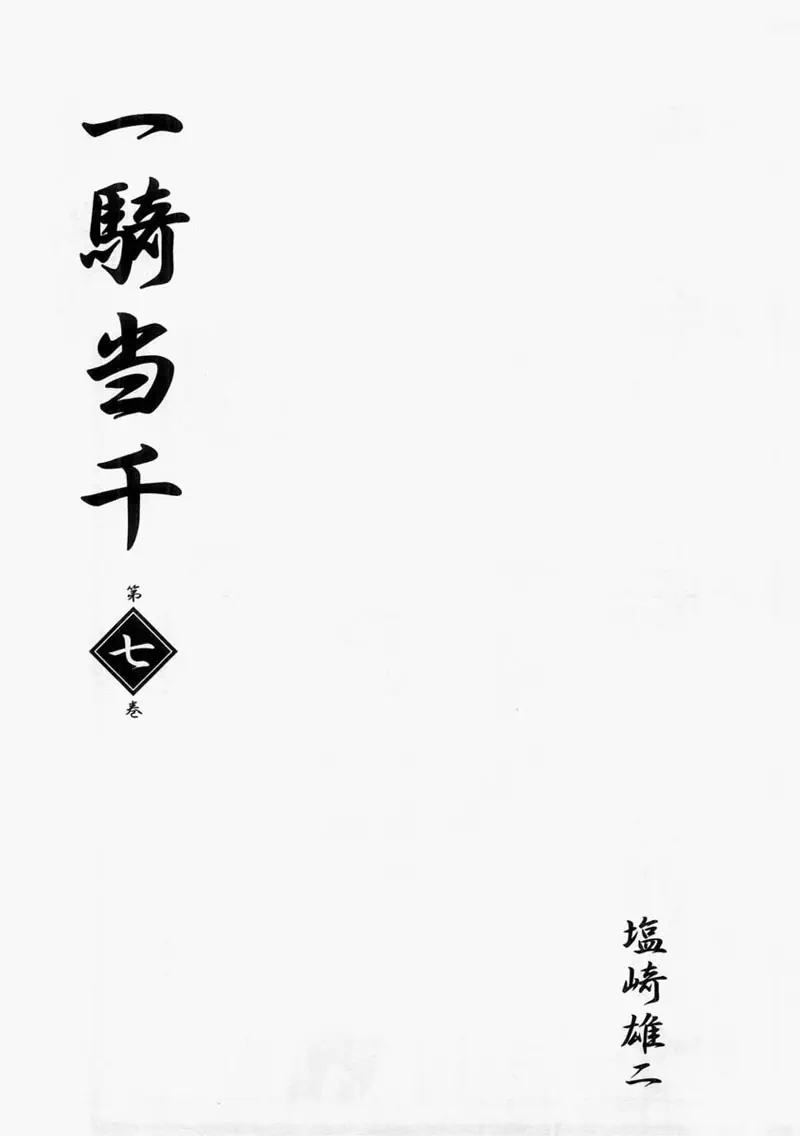 一騎当千
第七巻
塩崎雄二